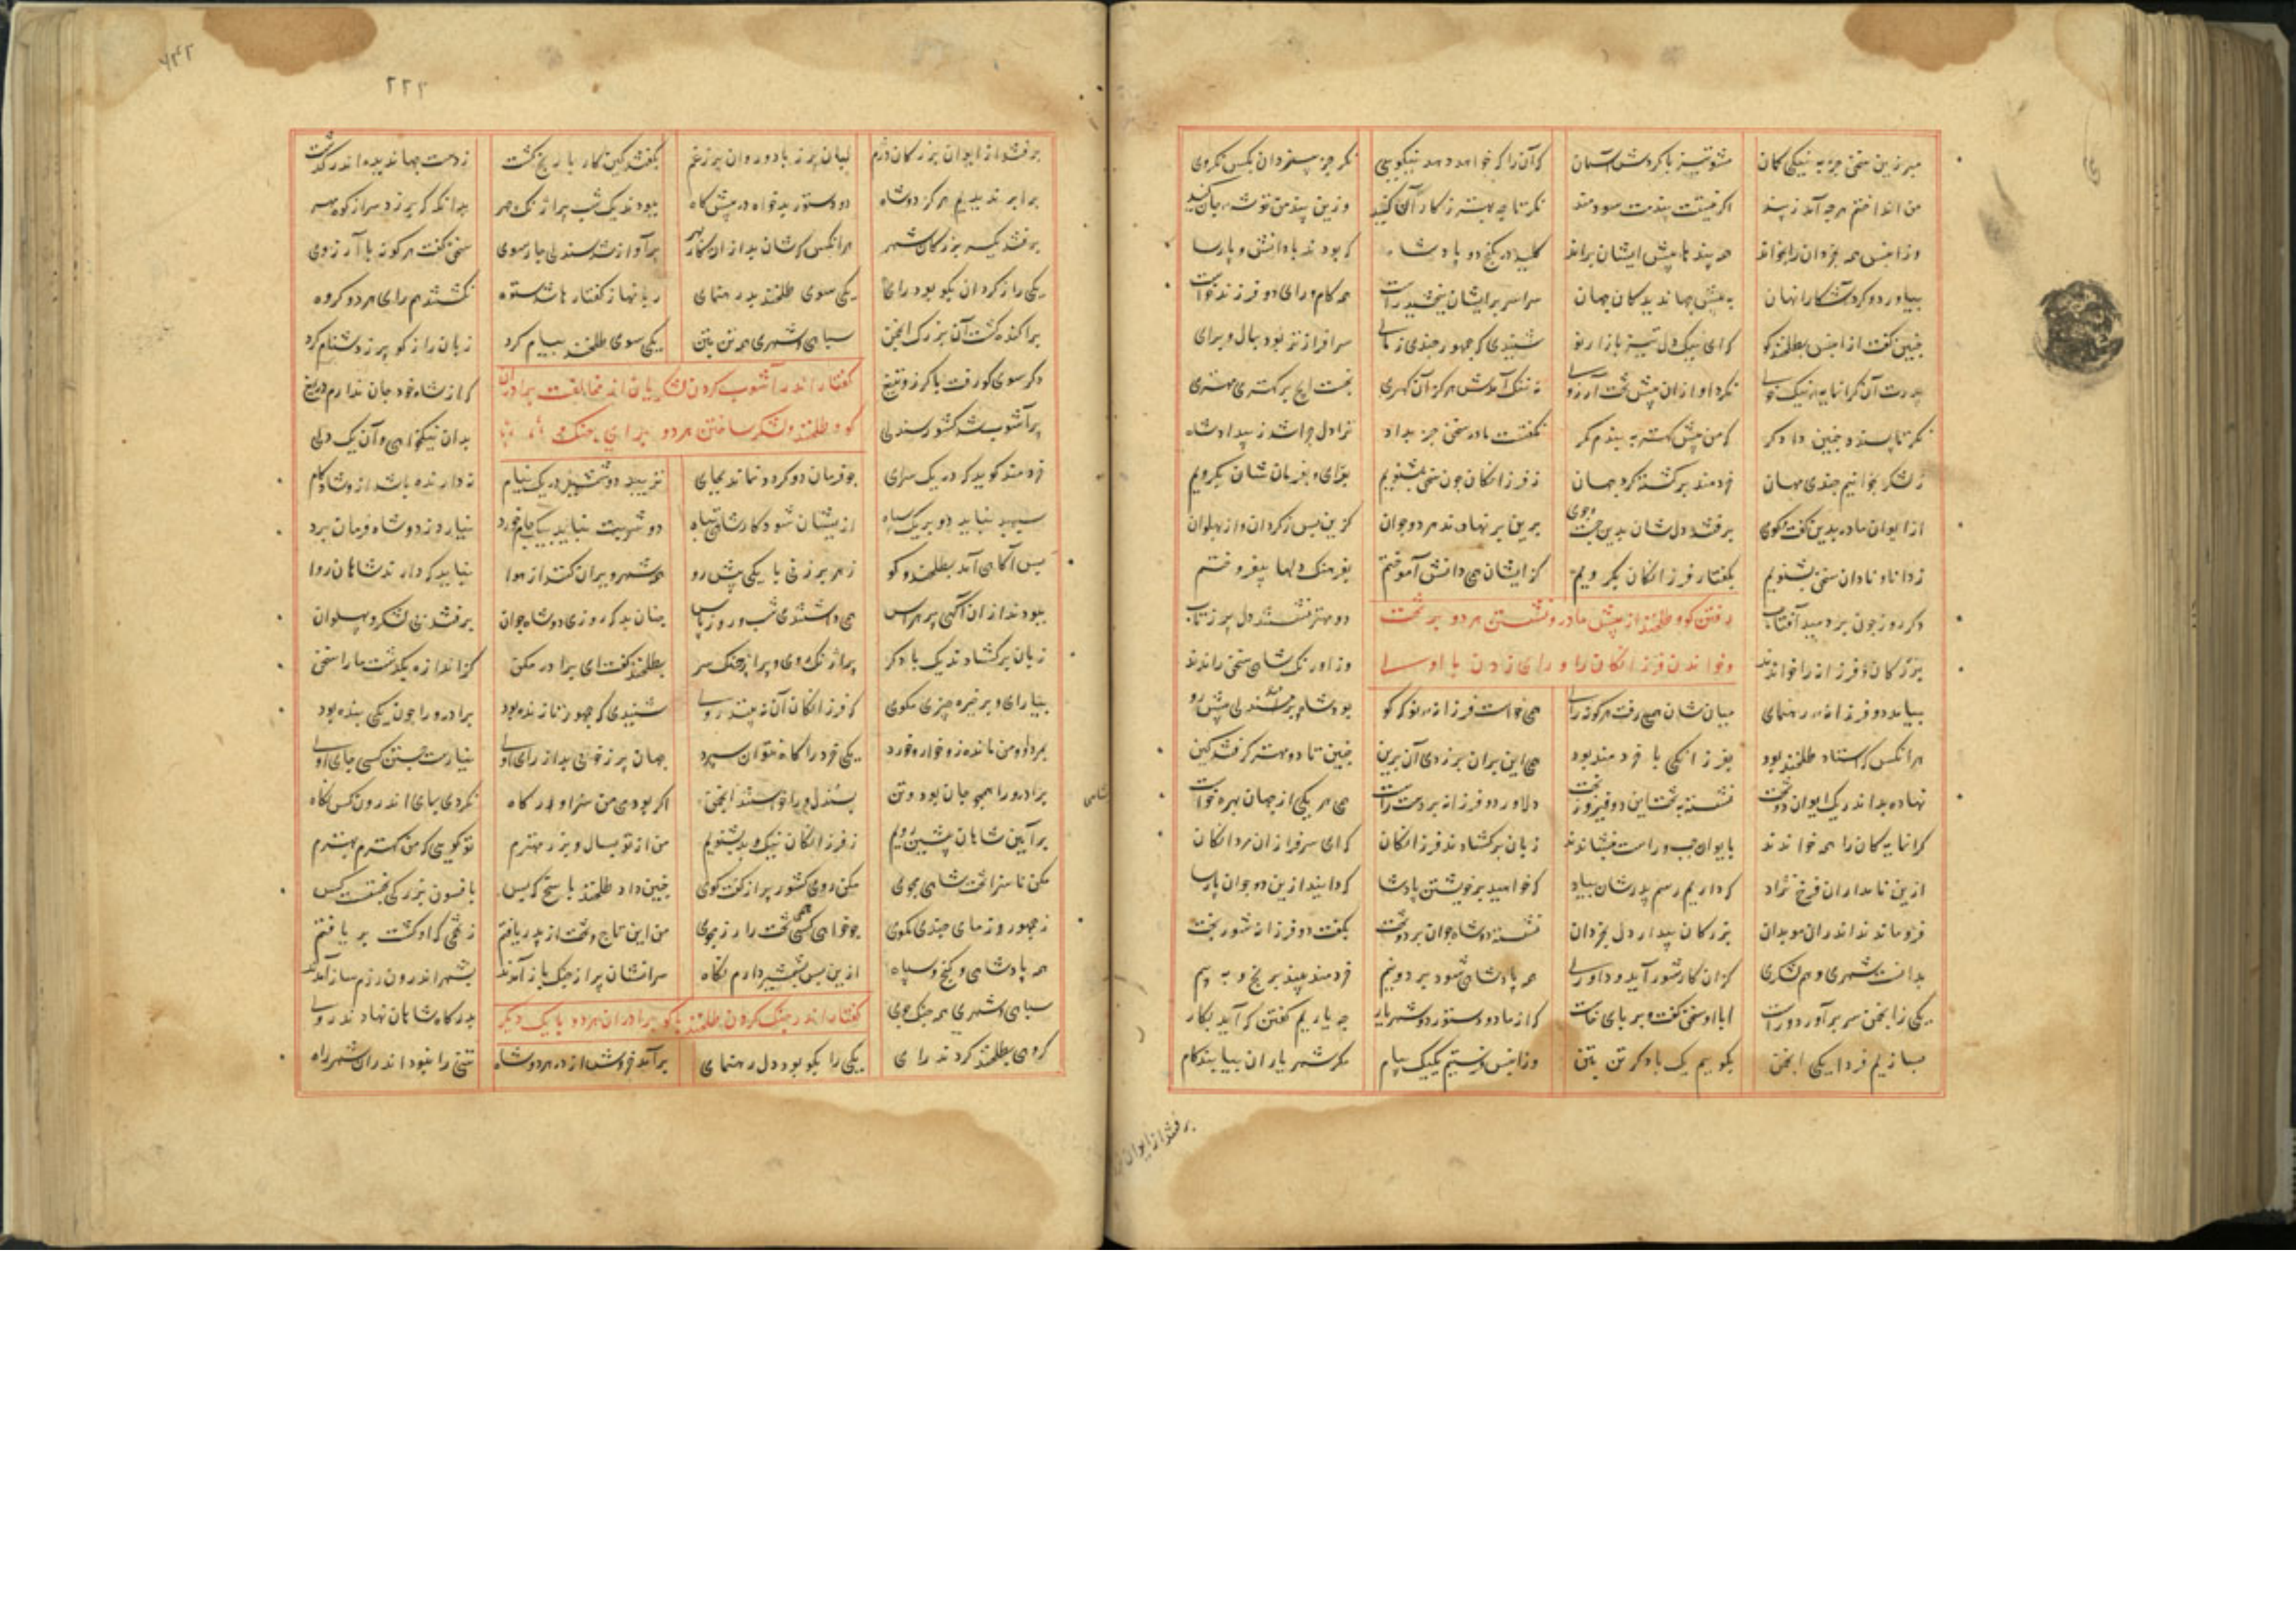 مبر زین سخن جز به نیکی گمان مشو تیز با گردش آسمان که آن را که خواهد دهد نیکویی نگر جز به یزدان بکس نگروی
من انداختم هرچه آمد ز پند اگر نیست پندت سودمند نگر تا چه بهتر ز کار آن کنید وزین پند من توشه جان کنید
وزانپس همه بخردان را بخواند همه پندها پیش ایشان براند کلید در گنج دو پادشا که بودند با دانش و پارسا
بیاورد و کرد آشکارا نهان به پیش جهاندیدگان جهان سراسر بر ایشان ببخشید راست همه کام و رای دو فرزند خواست
چنین گفت ازانپس بطلخند گو که ای نیکدل تیز بازار نو شنیدی که جمهور چندی زمان سرافرازتر بود بسال و برای
پدرت آن گرانمایه نیک خوی نکرد او ازان پیش تخت آرزوی نه ننگ آمدش هرگز آن کهتری نجست ایچ بر مهتری مهتری
نگر تا پسندد چنین دادگر که من پیش کهتر ببندم کمر نگفتست مادر سخن جز بداد ترا دل چرا شد ز بیداد شاد
ز لشکر بخوانیم چندی مهان خردمند برگشته گرد جهان ز فرزانگان چون سخن بشنویم برای و بفرمانشان بگرویم
از ایوان مادر بدین گفت و گوی برفتند دلشان بدین جست و جوی برین بر نهادند هر دو جوان کزین پس ز گردان و از پهلوان
ز دانا و نادان سخن بشنویم بگفتار فرزانگان بگرویم کز ایشان همی دانش آموختیم بفرهنگ دلها برافروختیم
دگر روز چون بردمید آفتاب رفتن گو و طلخند از پیش مادر و نشستن هر دو بر تخت دو مهتر نشستند دل پر ز تاب
بزرگان و فرزانه را خواندند و خواندن فرزانگان را و رای زدن با او وز اورنگ شاهی سخن راندند
بیامد دو فرزانه رهنمای میانشان همی رفت هرگونه رای همی خواست فرزانه گو که گو بود شاه
هرانکس که استاد طلخند بود بفرزانگی با خردمند بود همی این بران بر زد و آن برین چنین تا دو مهتر گرفتند کین
نهاده بد اندر یک ایوان دو تخت نشسته به تخت این دو فیروزبخت دلاور دو فرزانه بر دست راست همی هر یکی از جهان بهره خواست
گرانمایگان را همه خواندند بایوان چپ و راست بنشاندند زبان برگشادند فرزانگان که ای سرفرازان مردانگان
ازین نامداران فرخ نژاد که داریم رسم پدرشان بیاد که خواهید بر خویشتن پادشا که دانید ازین دو جوان پارسا
فرو ماندند اندران موبدان بزرگان بیدار دل بخردان نشسته دو شاه جوان بر دو تخت بگفت دو فرزانه شوربخت
بدانست شهری و هم لشکری کزان کار شور آید و داوری همه پادشاهی شود بر دو نیم خردمند بیند بر رنج و بیم
یکی زانجمن سر برآورد راست ابا او سخن گفت و بر پای خاست که از ما دو دستور دو شهریار چه یاریم گفتن که آید بکار
بسازیم فردا یکی انجمن بگوییم یک با دگر تن بتن وزانپس فرستیم یک یک پیام مگر شهریاران بیابند کام
برفتند از ایوان
۲۲۲
برفتند از ایوان بزرگان دژم لبان پر ز باد و روان پر ز غم بگفتند کین کار با رنج گشت ز دست جهاندیده اندر گذشت
برابر ندیدیم هرگز دو شاه دو دستور بدخواه در پیشگاه ببودند یک شب پر آژنگ چهر بدانگه که بر زد سر از کوه مهر
برفتند یکسر بزرگان شهر هرانکس که شان بد ازان کار بهر پرآواز شد سندلی چار سوی سخن گفت هرکو بآرزوی
یکی را ز گردان بگو بود رای یکی سوی طلخند بد رهنمای زبانها ز گفتارها شد ستوه نگشتند همرای هر دو گروه
پراکنده گشت آن بزرگ انجمن سپاهی و شهری همه تن بتن یکی سوی طلخند پیغام کرد زبان را ز گو پر ز دشنام کرد
دگر سوی گو رفت با گرز و تیغ گفتار اندر آشوب کردن لشکریان اندر مخالفت برادران که از شاه خود جان ندارم دریغ
پرآشوب شد کشور سندلی گو و طلخند و لشکر ساختن هر دو برای جنگ بدان نیکخواهی و آن یکدلی
خردمند گوید که در یک سرای چو فرمان دو گردد نماند بجای نزیبد دو شمشیر در یک نیام ندارنده باشد از شادکام
سپهبد نباید دو بر یک سپاه ازیشان شود کار شاهی تباه دو شربت نباید بیک جام خورد نیارد ز دو شاه فرمان برد
پس آگاهی آمد بطلخند و گو ز هر برزنی با یکی پیشرو همه شهر ویران کنند از هوا نباید که دارند شاهان روا
ببودند ازان آگهی پرهراس همی داشتندی شب و روز پاس چنان بد که روزی دو شاه جوان برفتند بی لشکر و پهلوان
زبان برگشادند یک با دگر پر آژنگ روی و پر از جنگ سر بطلخند گفت ای برادر مکن کز اندازه بگذشت ما را سخن
بنیارای و بر خیره چیزی مگوی که فرزانگان آن نبیند روی شنیدی که جمهور تا زنده بود برادر ورا چون یکی بنده بود
بمرد او و من مانده زو خوار و خرد یکی خرد را گاه نتوان سپرد جهان پر ز خوبی بد از رای اوی نیارست جستن کسی جای اوی
برادر ورا همچو جان بود و تن بشد دل ورا خواستند انجمن اگر بودمی من سزاوار گاه نکردی بمای اندرون کس نگاه
بر آیین شاهان پیشین رویم ز فرزانگان نیک و بد بشنویم من از تو بسال و بزرگ مهترم تو گویی که من کهترم بهترم
مکن ناسزا تخت شاهی مجوی مکن روی کشور پر از گفت گوی چنین داد طلخند پاسخ که بس بافسون بزرگی نجستست کس
من این تاج و تخت از پدر یافتم ز تخمی که او کشت بر یافتم
همه پادشاهی و گنج و سپاه ازین پس بشمشیر دارم نگاه ز جمهور وز مای چندی مگوی چو خواهی کسی تخت را رزم جوی
سرانشان پر از جنگ باز آمدند بشهر اندرون رزم ساز آمدند
سپاهی و شهری همه جنگجوی گفتار اندر جنگ کردن طلخند با گو برادران هر دو با یک دیگر بدرگاه شاهان نهادند روی
گروهی بطلخند کردند رای یکی را بگو بود دل رهنمای برآمد خروش از در هر دو شاه تنی را نبود اندران شهر راه